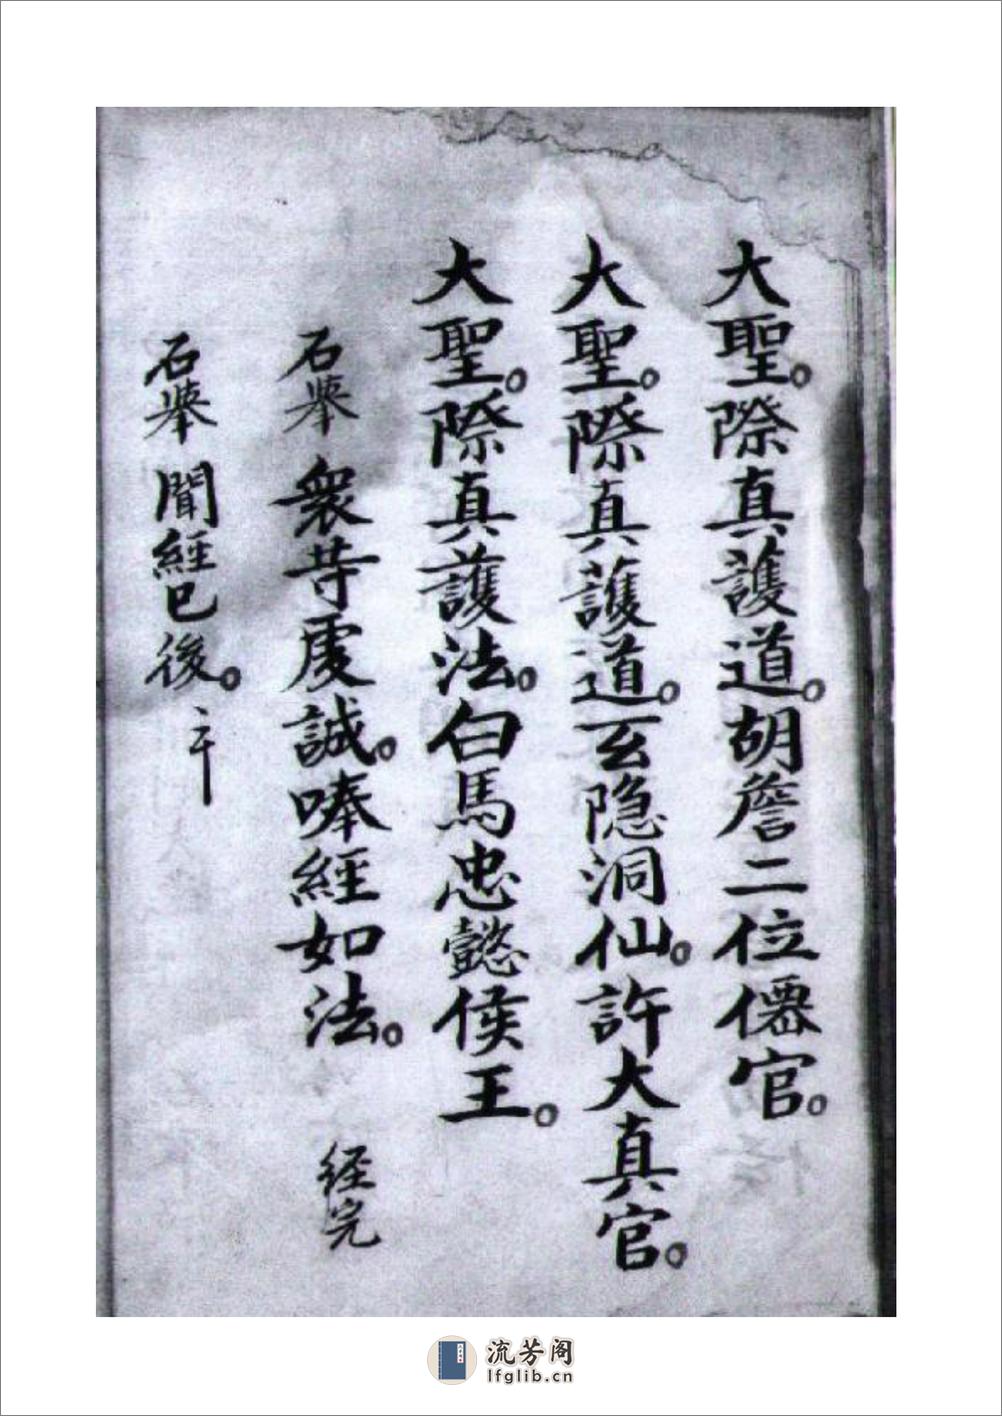 大聖。際真護道。胡詹二位僊官。
大聖。際真護道。玄隐洞仙。許大真官。
大聖。際真護法。白馬忠懿侯王。
石舉 衆等虔誠。唪經如法。 经完
石舉 聞經已後。
流芳阁
lfglib.cn